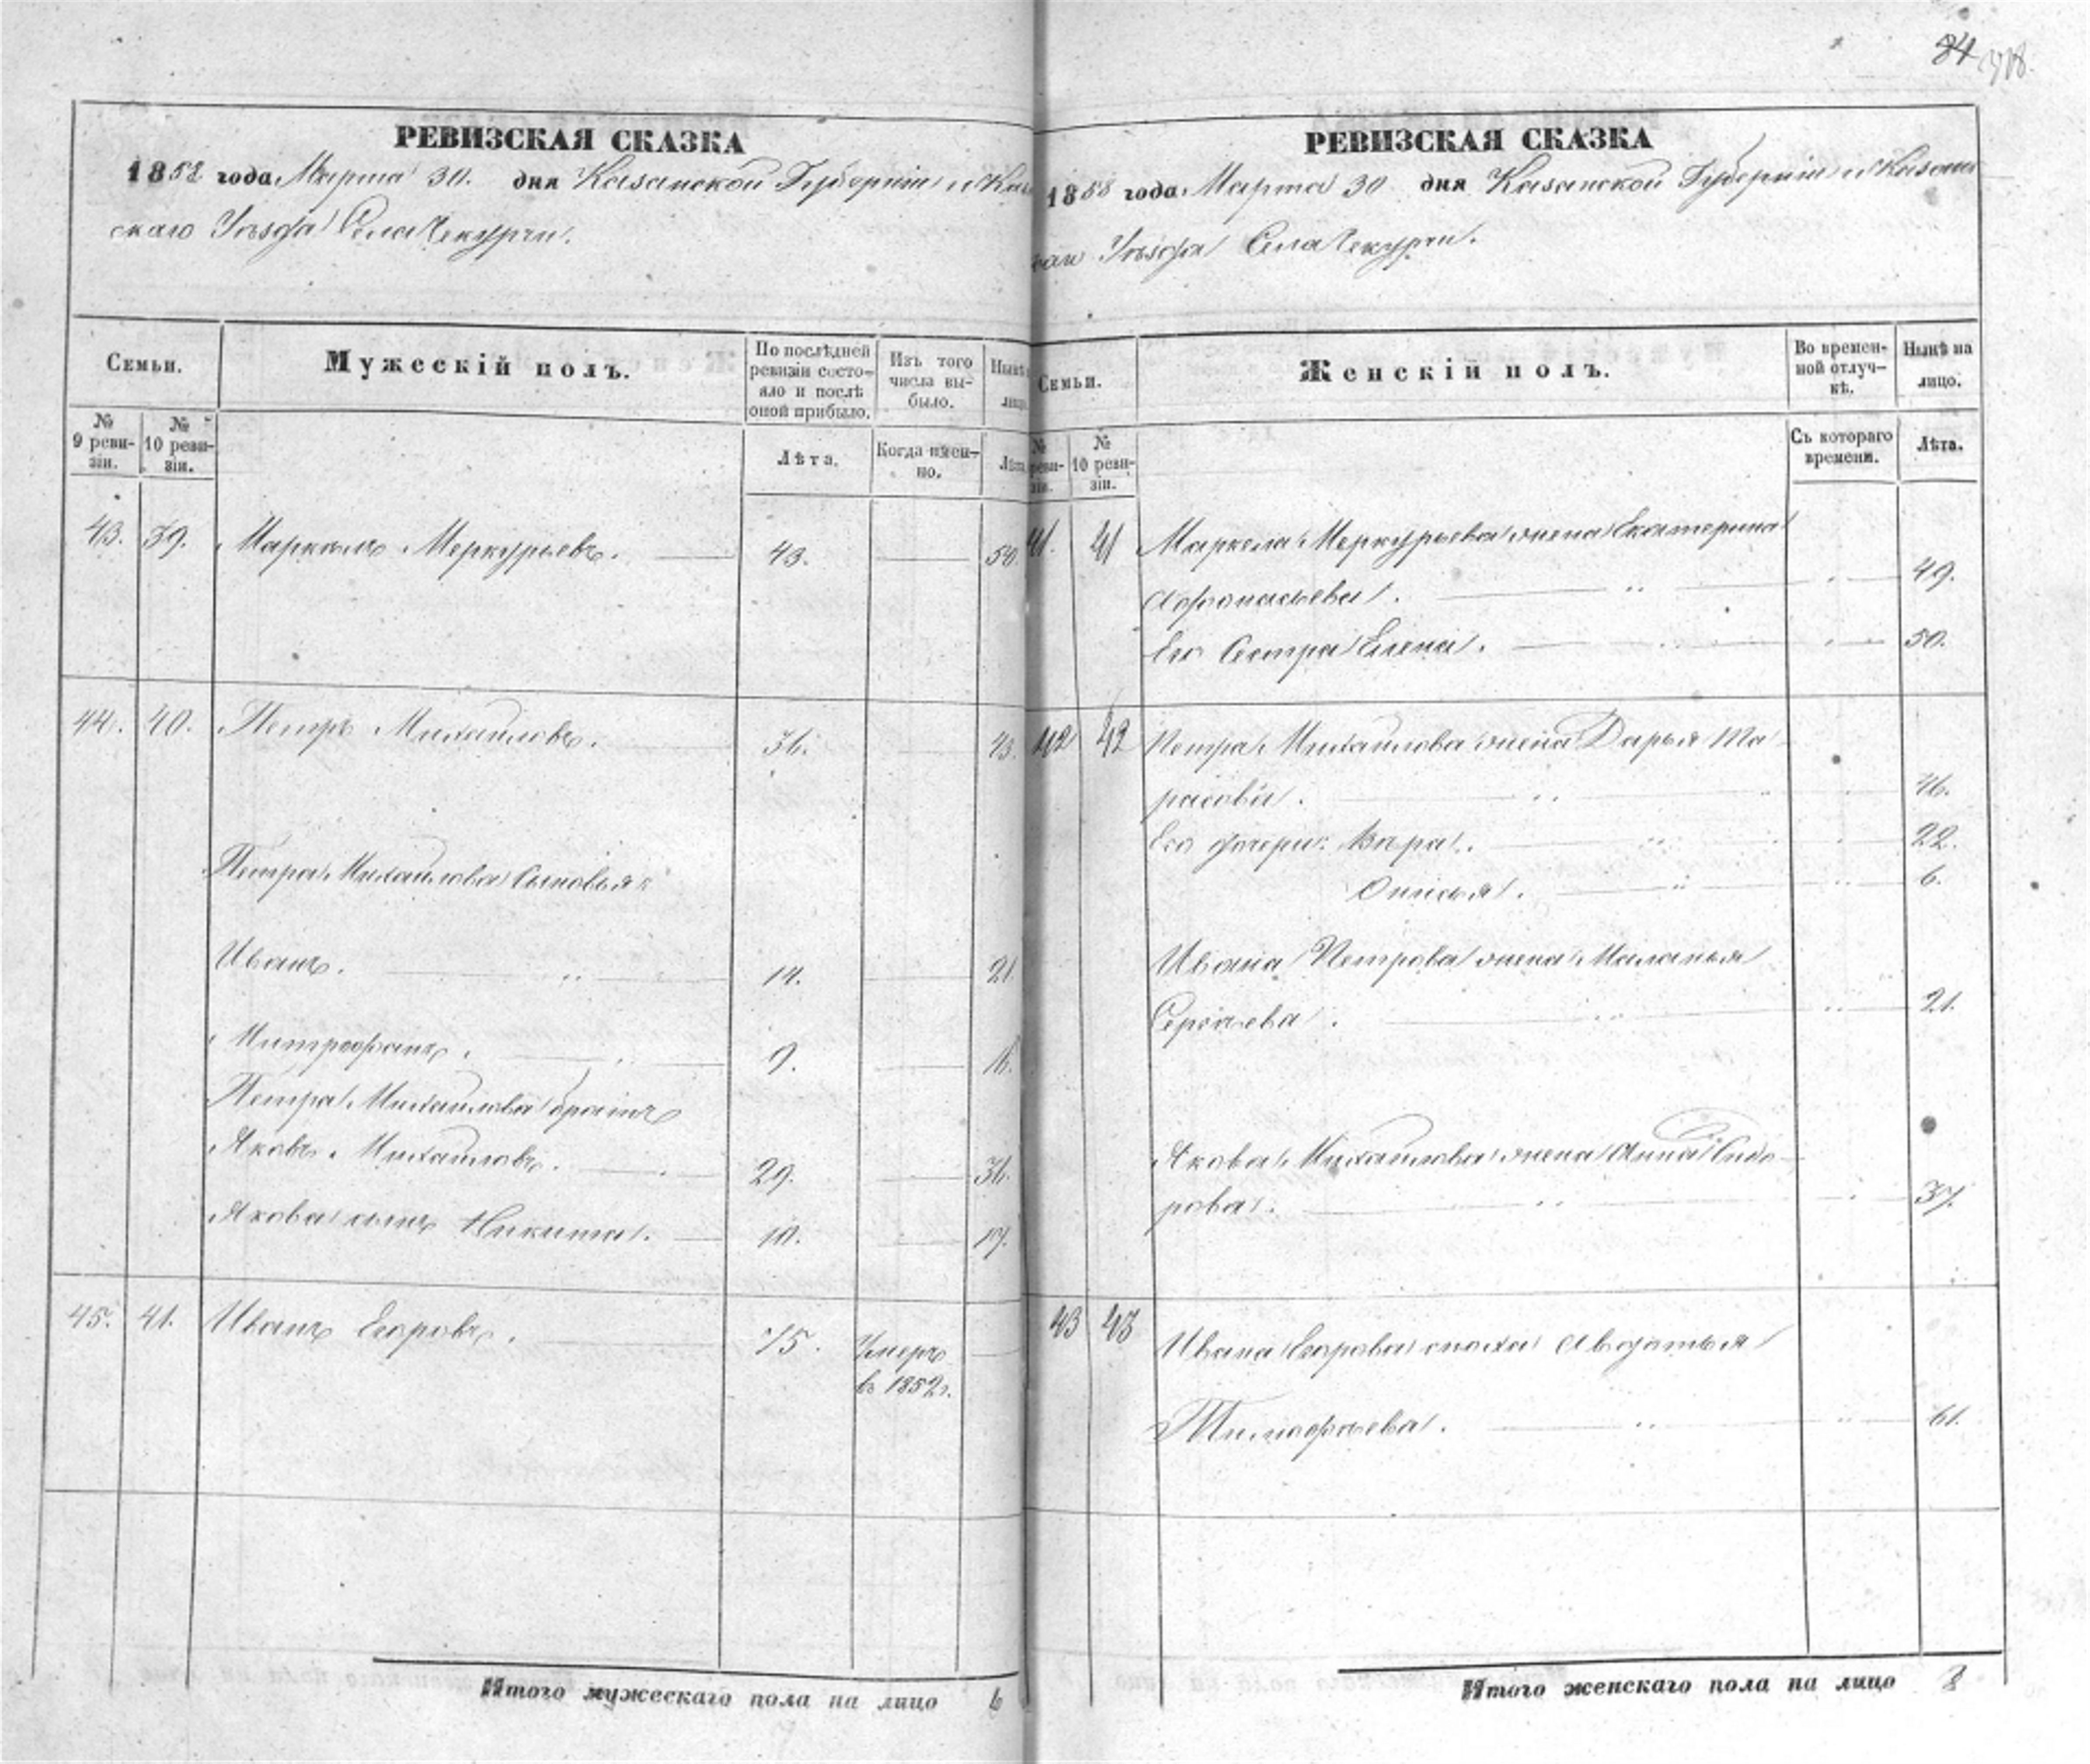 84
РЕВИЗСКАЯ СКАЗКА
1858 года Марта 30. дня Казанской Губерніи и Казан
скаго Уѣзда Села Чекурчи.
Семьи.
Мужескій полъ.
По послѣдней ревизіи состо-
яло и послѣ
оной прибыло.
Изъ того
числа вы-
было.
Нынѣ
лицо.
№
9 реви-
зіи.
№
10 реви-
зіи.
Лѣта.
Когда имен-
но.
Лѣта
43. 39. Маркелъ Меркурьевъ. 43. 50.
44. 40. Петръ Михайловъ. 36. 43.
Петра Михайлова сыновья:
Иванъ. 14. 21
Митрофанъ. 9. 16.
Петра Михайлова братъ
Яковъ Михайловъ. 29. 36.
Якова сынъ Никита. 10. 17.
45. 41. Иванъ Егоровъ. 75. Умеръ
въ 1852г.
Итого мужескаго пола на лицо 6
РЕВИЗСКАЯ СКАЗКА
1858 года Марта 30 дня Казанской Губерніи и Казан
Уѣзда Села Чекурчи.
Семьи.
Женскій полъ.
Во времен-
ной отлуч-
кѣ.
Нынѣ на
лицо.
№
реви-
зіи.
№
10 реви-
зіи.
Съ котораго
времени.
Лѣта.
41. 41 Маркела Меркурьева жена Екатерина
Афонасьева. 49.
Его Сестра Елена. 50.
42 42 Петра Михайлова жена Дарья Та-
расова. 46.
Его дочери: Вера. 22.
Онисья. 6.
Ивана Петрова жена Маланья
Сергѣева. 21.
Якова Михайлова жена Анна Сидо-
рова. 37.
43 43 Ивана Егорова сноха Авдотья
Тимофѣева. 61.
Итого женскаго пола на лицо 8